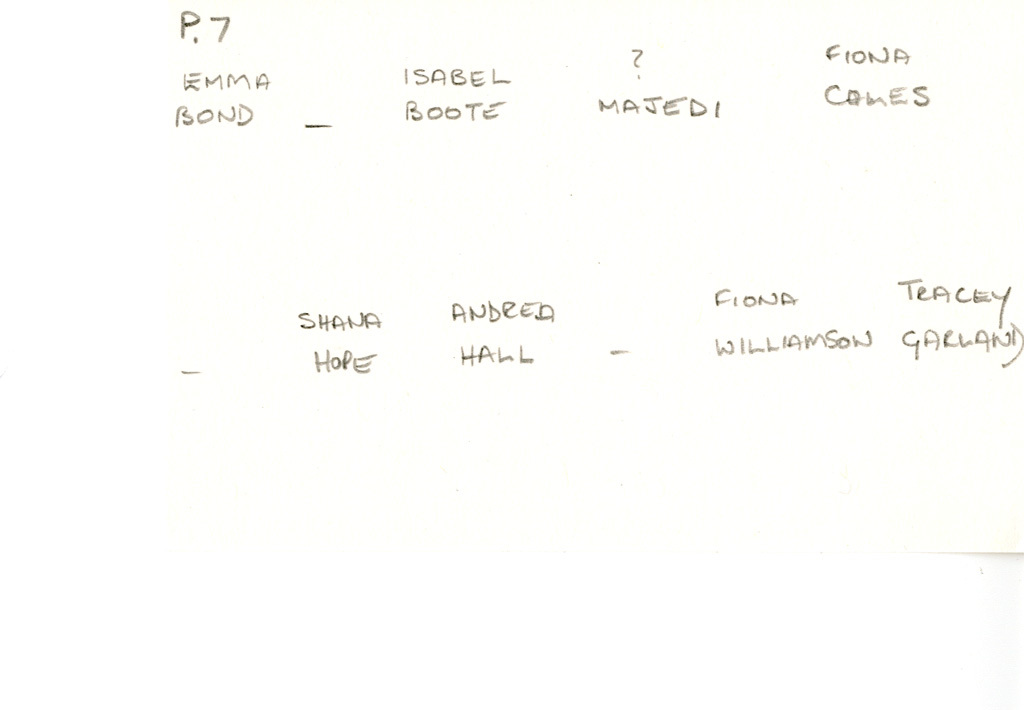 P.7
EMMA ISABEL ? FIONA
BOND — BOOTE MAJEDI
SHANA ANDREA FIONA TRACEY
— HOPE HALL — WILLIAMSON GARLAND